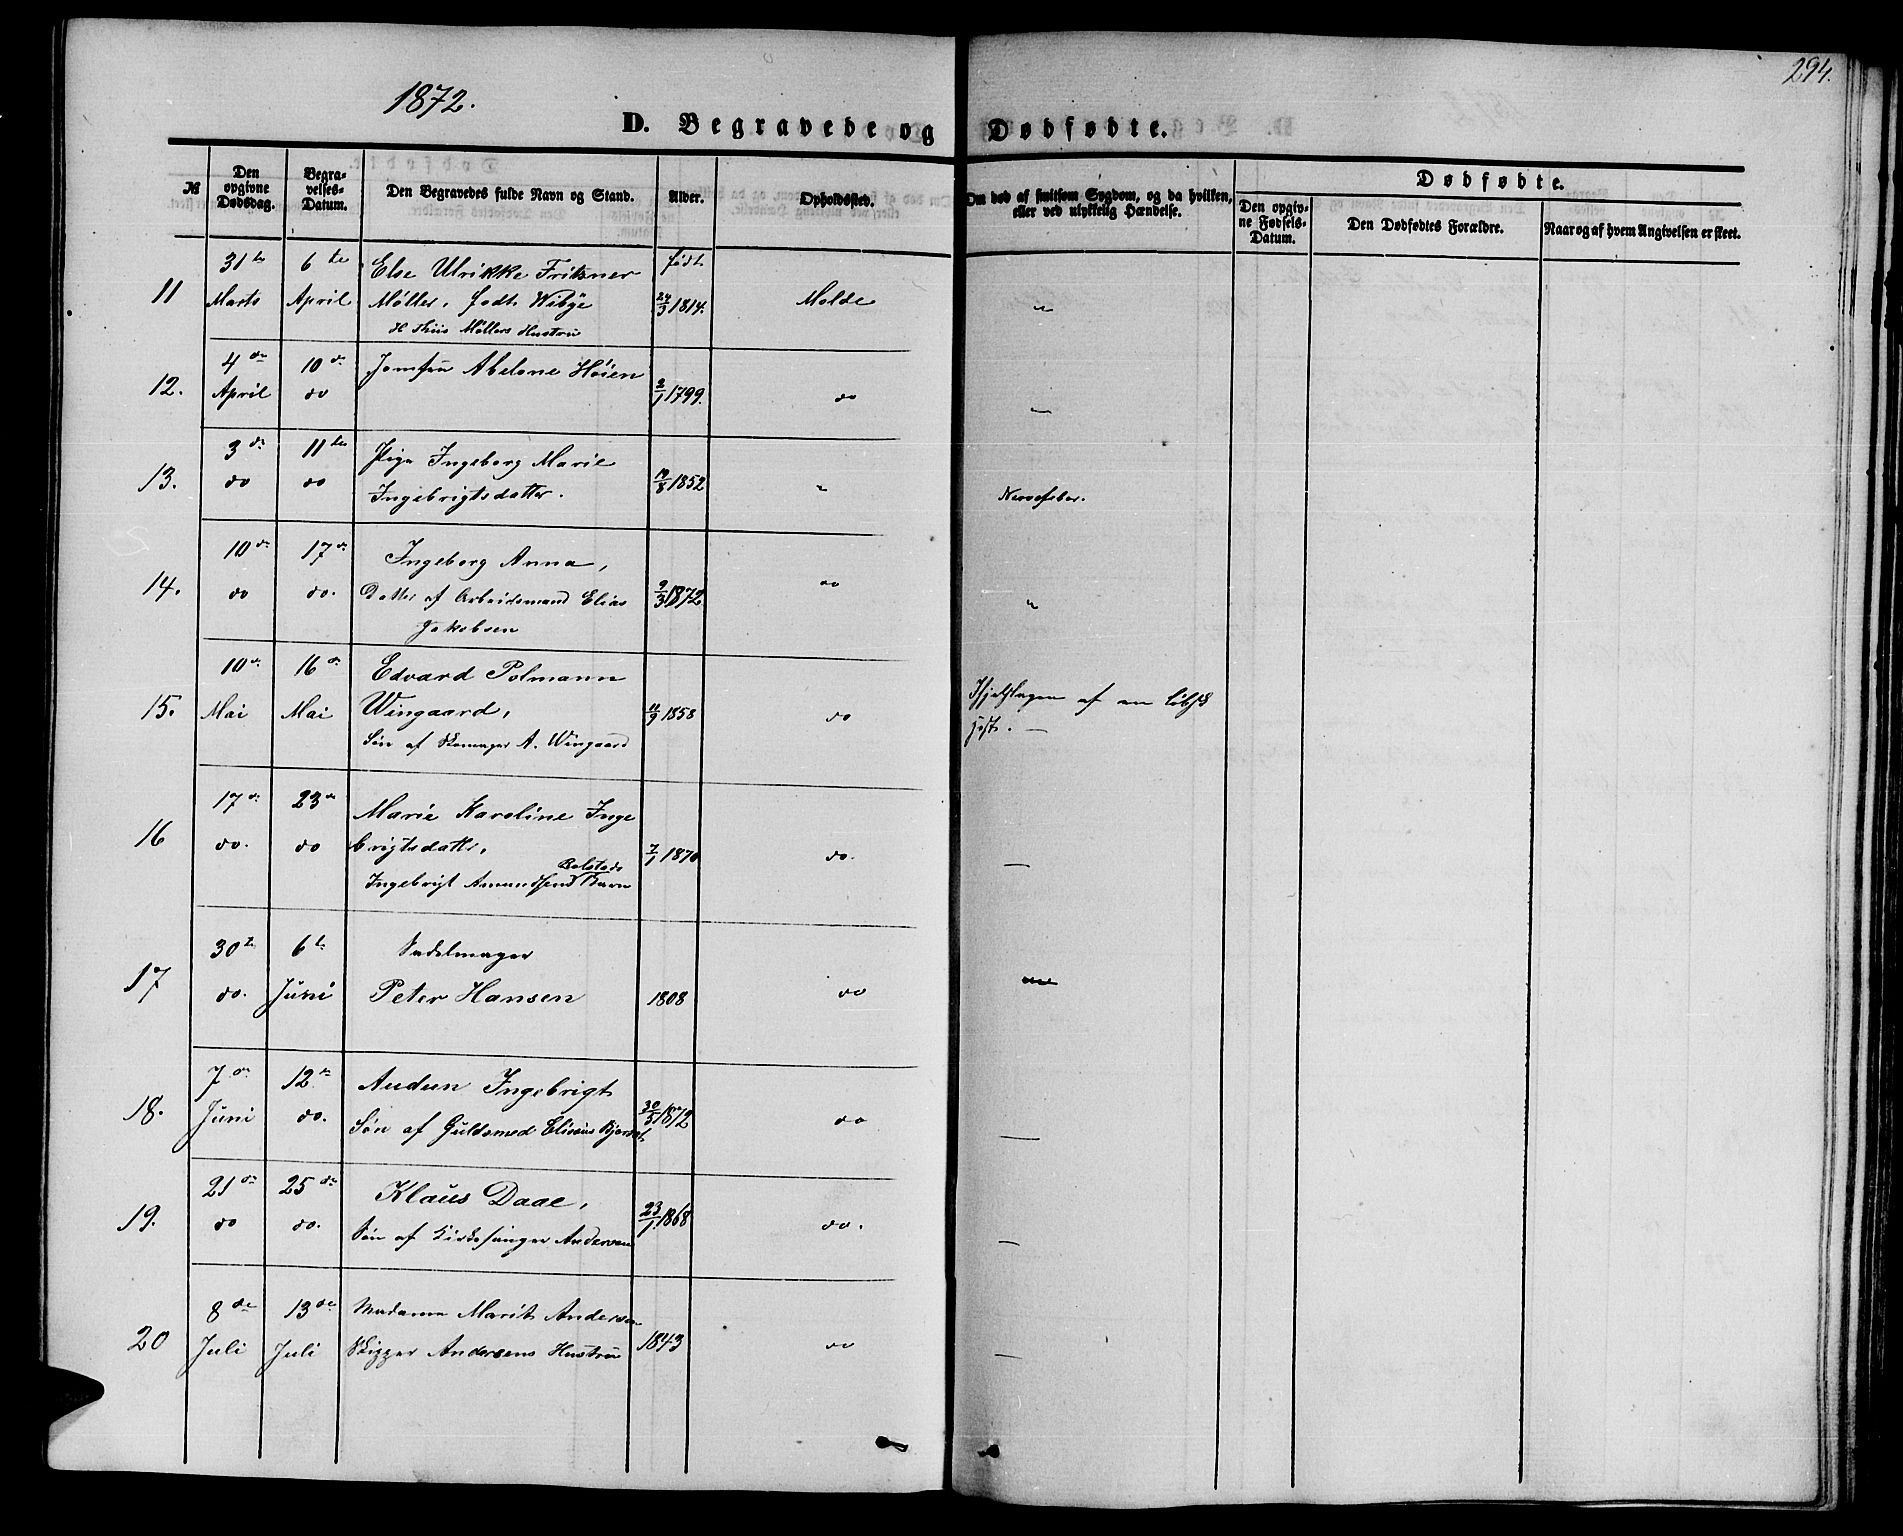 1872.
294.
D. Begravede og Dødfødte.
№
Den opgivne Dødsdag.
Begravelses-Datum.
Den Begravedes fulde Navn og Stand.
Alder.
Opholdssted.
Om død af smitsom Sygdom, og da hvilken, eller ved ulykkelig Hændelse.
Dødfødte.
Den opgivne Fødsels-Datum.
Den Dødfødtes Forældre.
Naar og af hvem Angivelsen er skeet.
31te 6te Else Ulrikke Fritzner født
11 Marts April Møller, født Wibye 24/3 1814. Molde "
H Thiis Møllers Hustru
4de 10de Jomfru Abelone Høien
12. April do 2/1 1799. do —
3de 11te Pige Ingeborg Marie
13. do do Ingebrigtsdatter. 19/8 1852 " Nervefeber.
10de 17de Ingeborg Anna,
14. do do. Datter af Arbeidsmand Elias 9/3 1872 do "
Jakobsen
10de 16de Edvard Polmann
15. Mai Mai Wingaard, 11/9 1858 do Ihjelslagen af en løbsk
Søn af Skomager A. Wingaard Hest. —
17de 23de Marie Karoline Inge
16 do. do brigtsdatter, 7/1 1870 do. —
Bolstads
Ingebrigt Amundsens Barn
30te 6te Sadelmager
17 do. Juni Peter Hansen 1808 do —
7de 12te Audun Ingebrigt
18. Juni do. Søn af Guldsmed Eliseus 30/5 1872 do —
21de 25de Klaus Daae,
19. do do. Søn af Kirkesanger Andersen 23/1 1868 do. —
8de 13de Madame Marit Andersen
20 Juli Juli Skipper Andersens Hustru 1843 do —